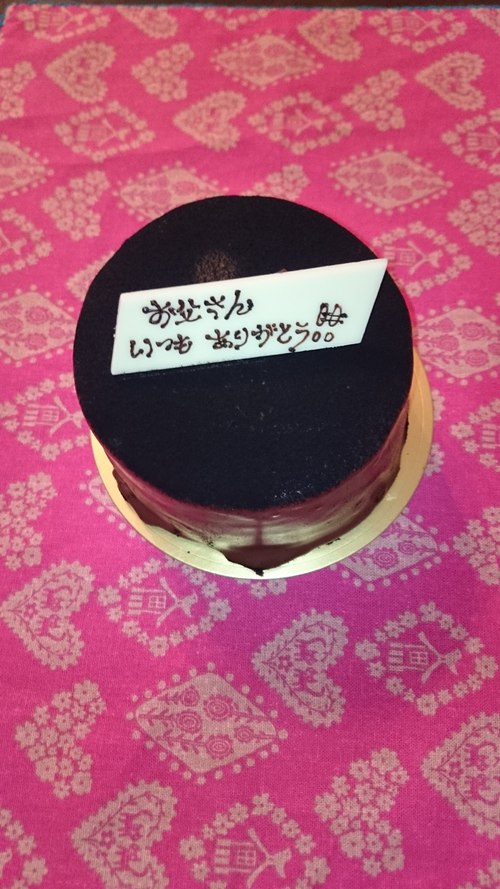 お父さん
いつも ありがとう!!